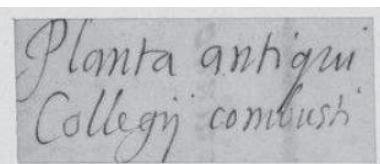 Planta antiqui
Collegij combusti